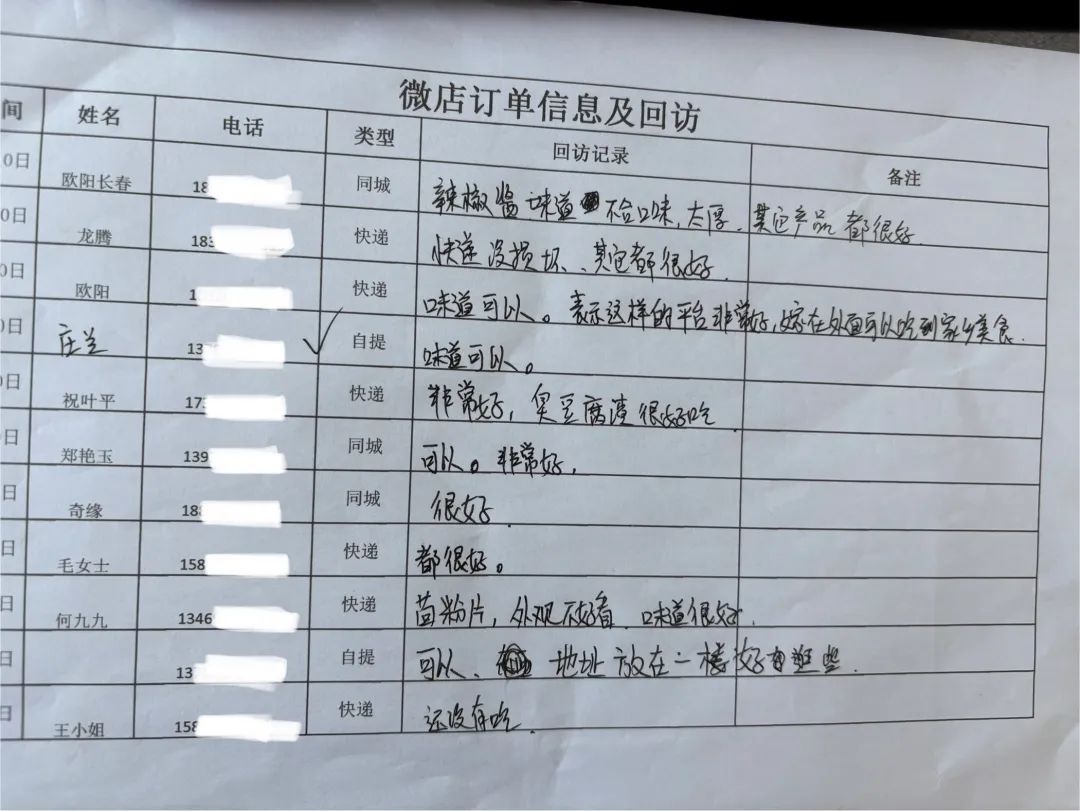 微店订单信息及回访
间 姓名 电话 类型 回访记录 备注
0日 欧阳长春 18 同城 辣椒酱味道不合口味,太厚.其它产品都很好.
0日 龙腾 183 快递 快递没损坏、其它都很好.
0日 欧阳 1 快递 味道可以。表示这样的平台非常好,嫁在外面可以吃到家乡美食.
0日 庄兰 13 自提 味道可以。
0日 祝叶平 17 快递 非常好,臭豆腐渣很好吃.
日 郑艳玉 139 同城 可以。非常好,
日 奇缘 18 同城 很好.
日 毛女士 158 快递 都很好。
日 何九九 1346 快递 粉片,外观不好看.味道很好.
日 13 自提 可以、地址放在一楼好些.
日 王小姐 158 快递 还没有吃.